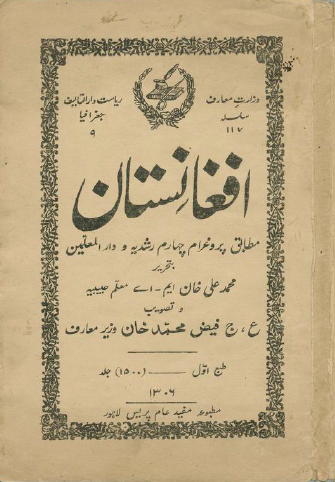 وزارت معارف
سلسله
۱۱۷
ریاست دارالتالیف
جغرافیا
۹
افغانستان
مطابق پروغرام چهارم رشدیه و دارالمعلمین
بتحریر
محمد علی خان ایم - اے معلم حبیبیه
و تصویب
ع ، ج فیض محمد خان وزیر معارف
طبع اوّل — (۱۵۰۰) جلد
۱۳۰۶
مطبوعه مفید عام پریس لاهور